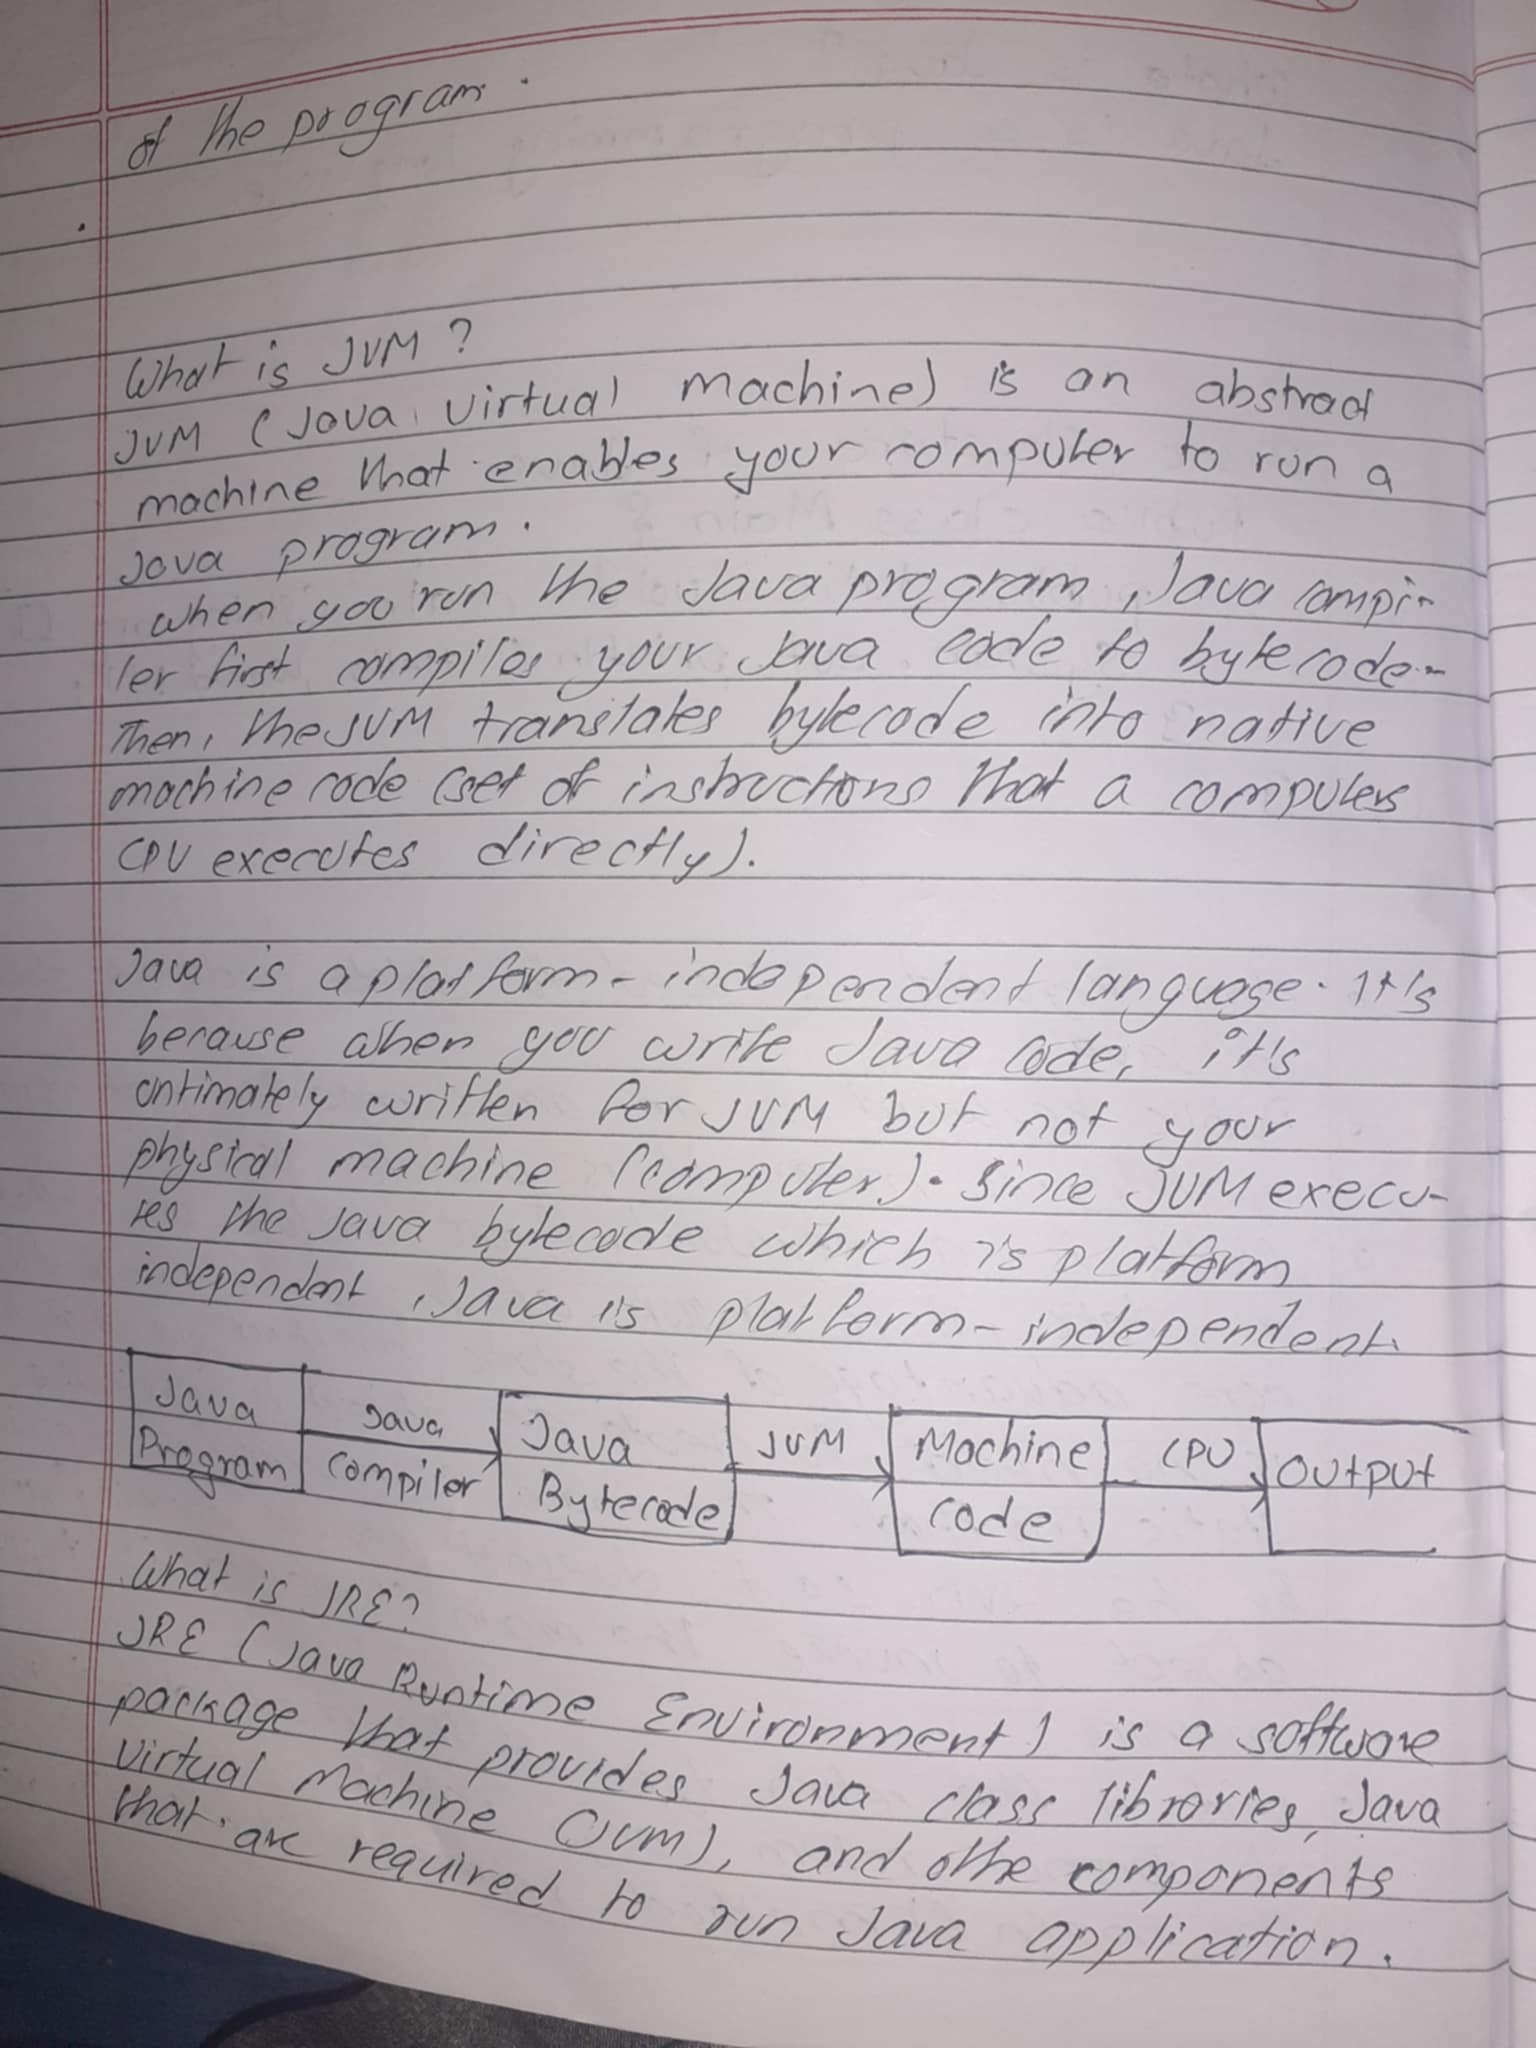 of the program.
What is JVM?
JVM (Java virtual machine) is an abstract
machine that enables your computer to run a
Java program.
when you run the Java program, Java compi-
ler first compiles your Java code to bytecode.
Then, the JVM translates bytecode into native
machine code (set of instructions that a computers
CPU executes directly).
Java is a platform-independent language. It's
because when you write Java code, it's
ontimately written for JVM but not your
physical machine (computer). Since JVM execu-
tes the Java bytecode which is platform
independent, Java is platform-independent.
Java Java Java JVM Machine CPU Output
Program Compiler Bytecode code
What is JRE?
JRE (Java Runtime Environment) is a software
package that provides Java class libraries, Java
Virtual Machine (JVM), and othe components
that are required to run Java application.